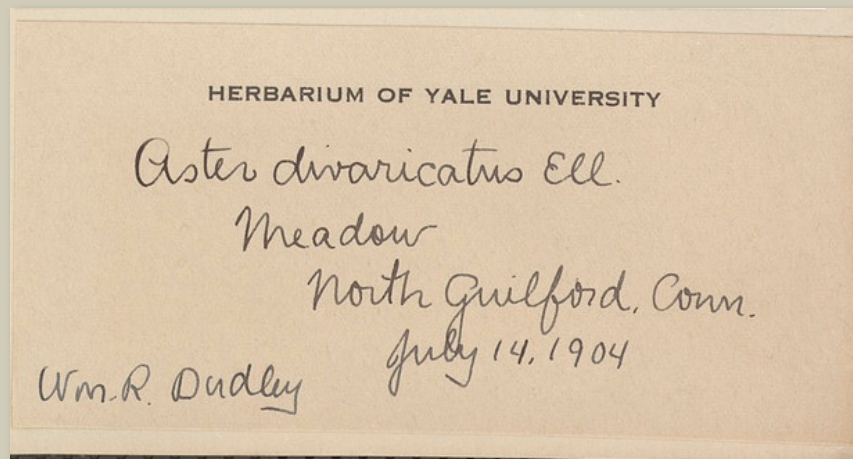 HERBARIUM OF YALE UNIVERSITY
Aster divaricatus Ell.
Meadow
North Guilford, Conn.
July 14, 1904
Wm. R. Dudley